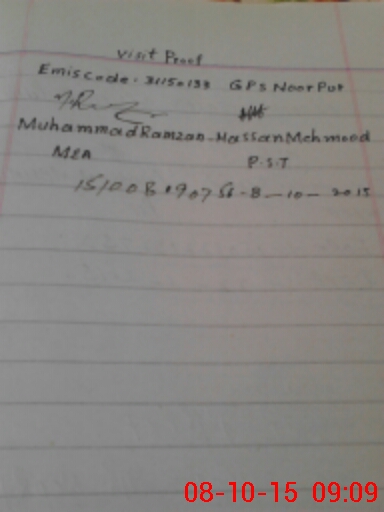 Visit Proof
Emiscode. 31150133 GPS Noor Pur
Muhammad Ramzan. Hassan Mehmood
MEA P.S.T
8-10-2015
08-10-15 09:09